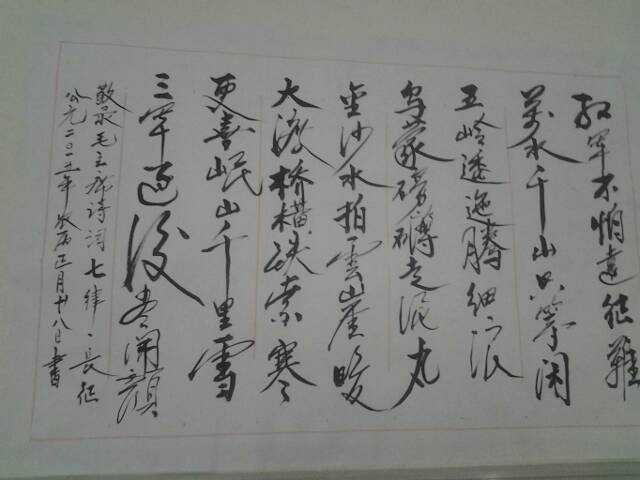 红军不怕远征难
万水千山只等闲
五岭逶迤腾细浪
乌蒙磅礴走泥丸
金沙水拍云山崖暖
大渡桥横铁索寒
更喜岷山千里雪
三军过后尽开颜
敬录毛主席诗词七律·长征
公元二〇一五年农历正月十八日书